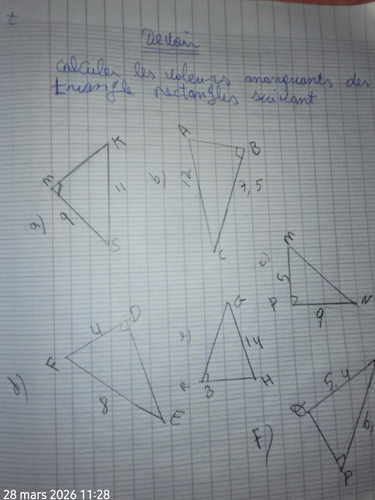 Devoir
calculer les valeurs manquants des
triangle rectangles suivant
K
M
11
9
S
a)
A
B
b)
12
7,5
C
c)
M
5
P
9
N
D
4
F
8
E
d)
G
e)
14
8
H
5,4
Q
6,
P
F)
28 mars 2026 11:28